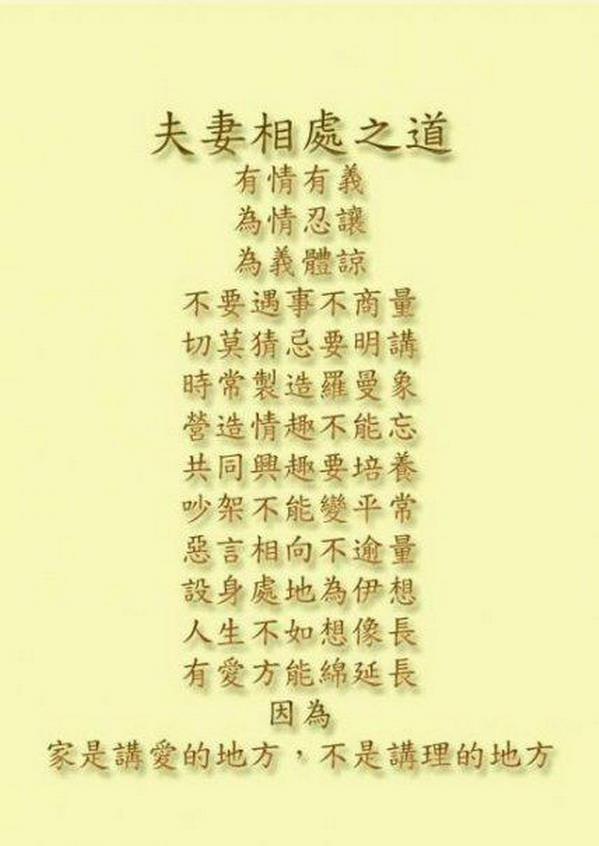 夫妻相處之道
有情有義
為情忍讓
為義體諒
不要遇事不商量
切莫猜忌要明講
時常製造羅曼象
營造情趣不能忘
共同興趣要培養
吵架不能變平常
惡言相向不逾量
設身處地為伊想
人生不如想像長
有愛方能綿延長
因為
家是講愛的地方，不是講理的地方